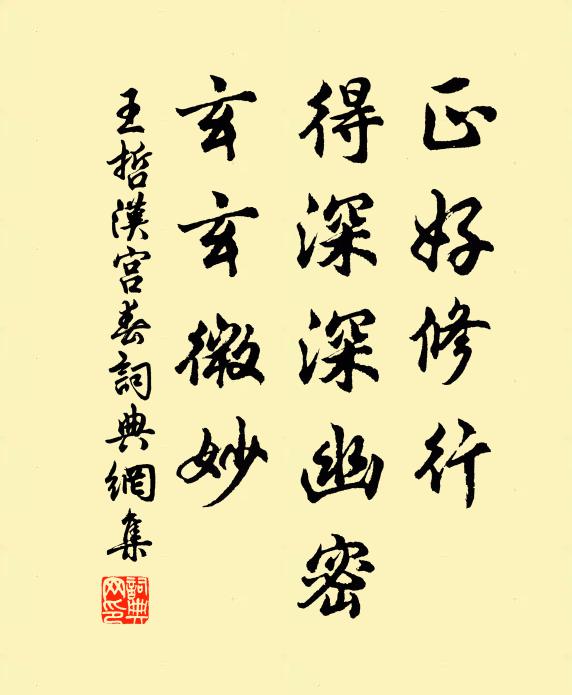 正好修行
得深深幽密
玄玄微妙
王哲漢宮春詞典網集
詞典網印